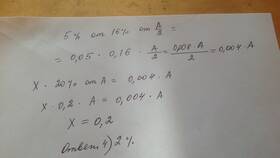 5 % от 16% от A/2 =
= 0,05 · 0,16 · A/2 = 0,008 · A/2 = 0,004 · A
X · 20% от A = 0,004 · A
X · 0,2 · A = 0,004 · A
X = 0,2
Ответ 4) 2 %